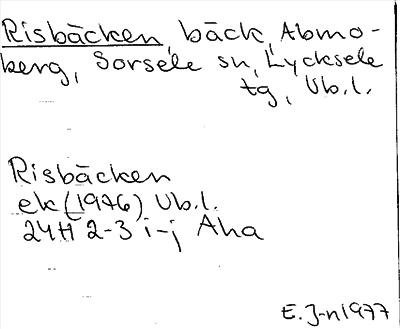 Risbäcken, bäck, Abmo-
berg, Sorsele sn, Lycksele
tg, Vb.l.
Risbäcken
ek (1976) Vb.l.
24H 2-3 i-j Aha
E. J-n 1977